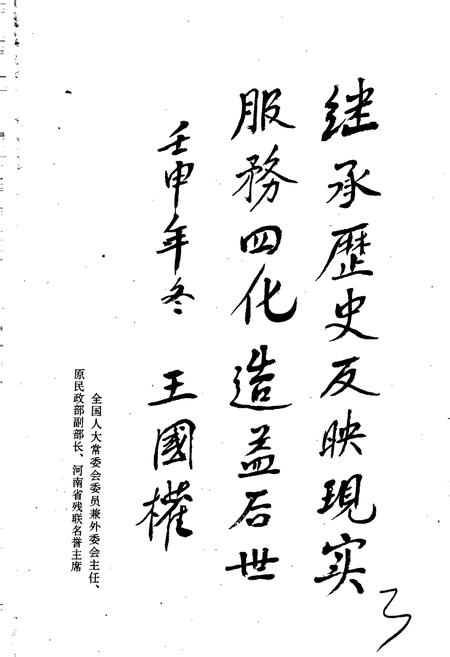 继承歷史反映現实
服務四化造益后世
壬申年冬 王國權
全国人大常委会委员兼外委会主任、
原民政部副部长、河南省残联名誉主席